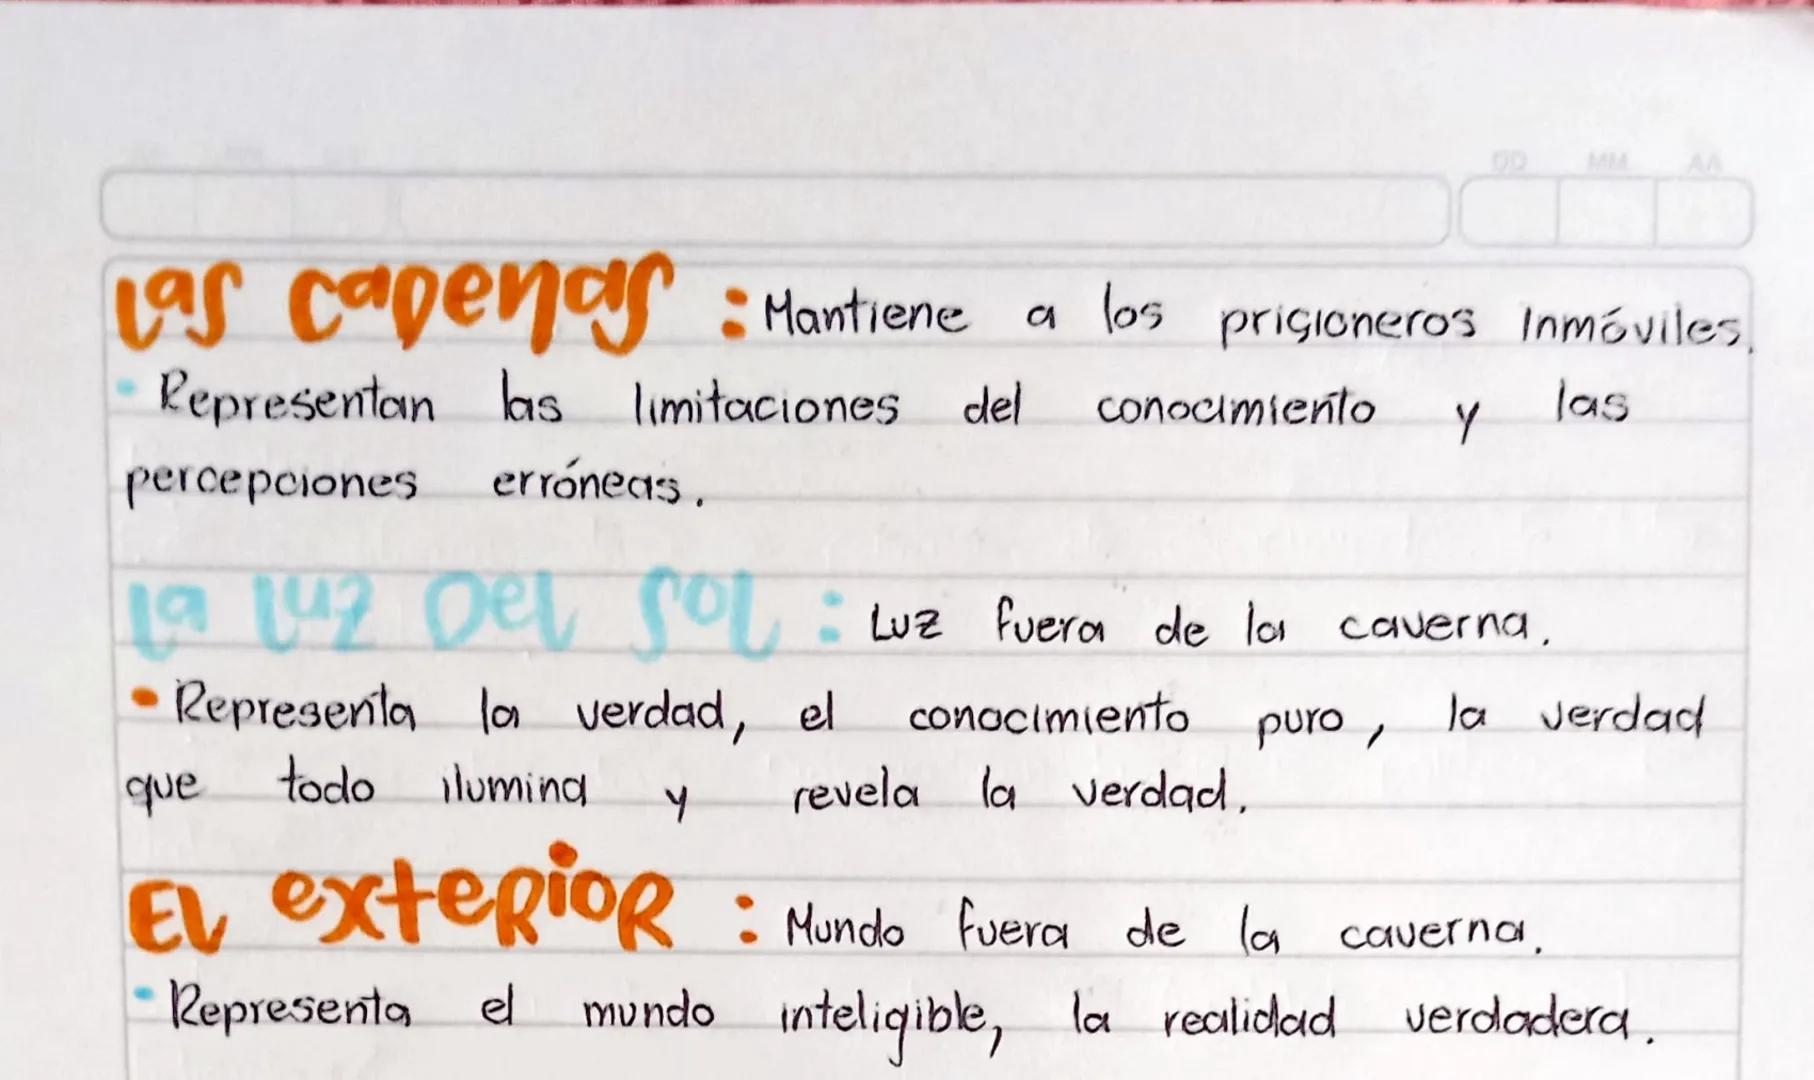 DD MM AA
Las cadenas : Mantiene a los prisioneros inmóviles.
• Representan las limitaciones del conocimiento y las
percepciones erróneas.
La luz Del Sol : Luz fuera de la caverna.
• Representa la verdad, el conocimiento puro, la verdad
que todo ilumina y revela la verdad.
El exterior : Mundo fuera de la caverna.
• Representa el mundo inteligible, la realidad verdadera.